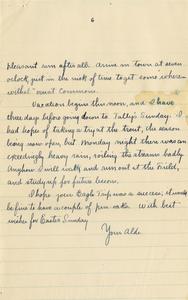 6
pleasant run after all. Arriv in town at seven
oclock, just in the nick of time to get some where-
withal "must Commons.
Vacation begins this noon, and I have
three days before going down to Tally's Sunday. I
had hopes of taking a try at the trout, the season
being now open, but Monday night there was an
exceedingly heavy rain, roiling the streams badly.
Anyhow I will walk and run out at the Field,
and study up for future
I hope your Trip was a success; it surely
be fine to have a couple of With best
wishes for Easter Sunday
Your Aldo